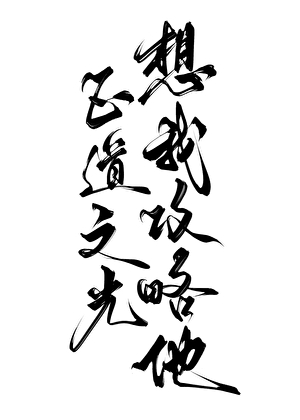 想我攻略他
正道之光